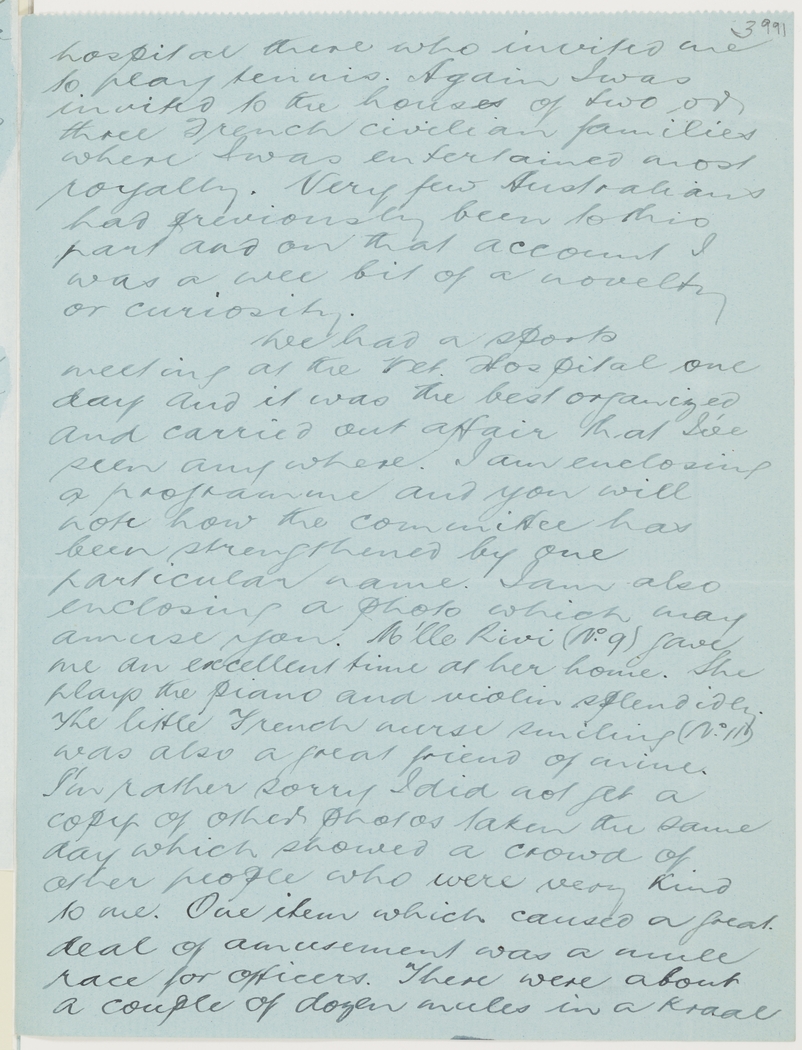 3991
hospital there who invited me
to play tennis. Again I was
invited to the houses of two or
three French civilian families
where I was entertained most
royally. Very few Australians
had previously been to this
part and on that account I
was a wee bit of a novelty
or curiosity.
We had a sports
meeting at the Vet. Hospital one
day and it was the best organized
and carried out affair that I've
seen anywhere. I am enclosing
a programme and you will
note how the committee has
been strengthened by one
particular name. I am also
enclosing a photo which may
amuse you. M'lle Rivi (No. 9) gave
me an excellent time at her home. She
plays the piano and violin splendidly.
The little French nurse smiling (No. 11)
was also a great friend of mine.
I'm rather sorry I did not get a
copy of other photos taken the same
day which showed a crowd of
other people who were very kind
to me. One item which caused a great
deal of amusement was a mule
race for officers. There were about
a couple of dozen mules in a Kraal